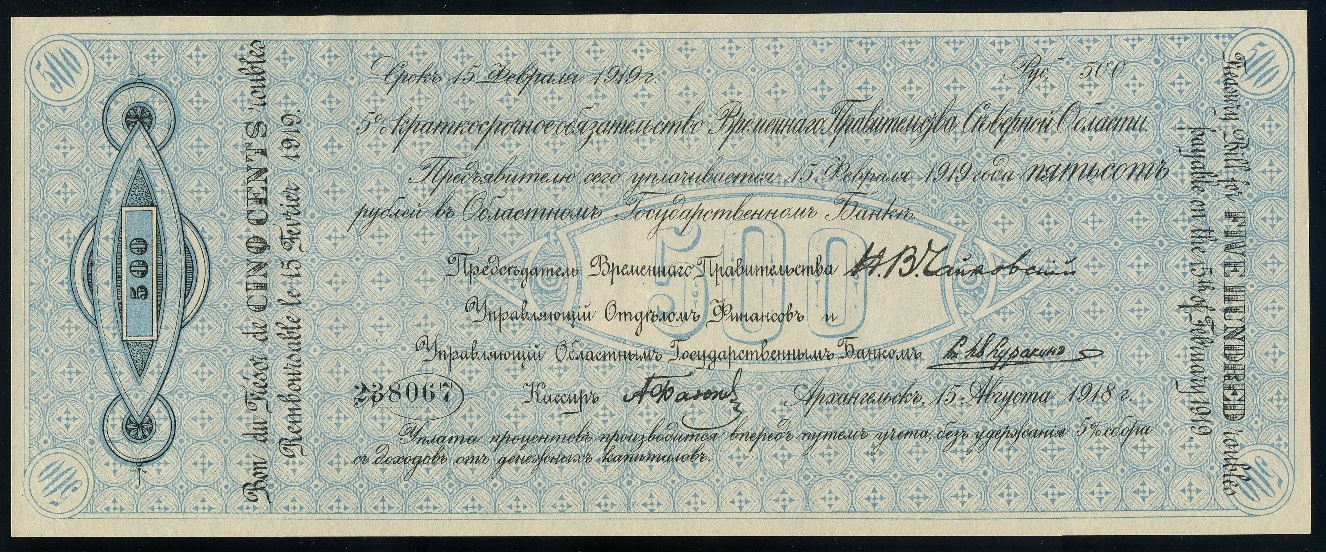 500
500
Срокъ 15 Февраля 1919 г.
Руб. 500
5% краткосрочное обязательство Временнаго Правительства Сѣверной Области.
Предъявителю сего уплачивается 15 Февраля 1919 года пятьсотъ
рублей въ Областномъ Государственномъ Банкѣ.
500
Предсѣдатель Временнаго Правительства Н. В. Чайковскій
Управляющій Отдѣломъ Финансовъ и
Управляющій Областнымъ Государственнымъ Банкомъ Куракинъ
238067
Кассиръ
Архангельскъ, 15 Августа 1918 г.
Уплата процентовъ производится впередъ путемъ учета, безъ удержания 5% сбора
съ доходовъ отъ денежныхъ капиталовъ.
500
Bon du Trésor de CINQ CENTS roubles
Remboursable le 15 Fevrier 1919.
Tresory Bill for FIVE HUNDRED roubles
payable on the 15th of February 1919
500
500